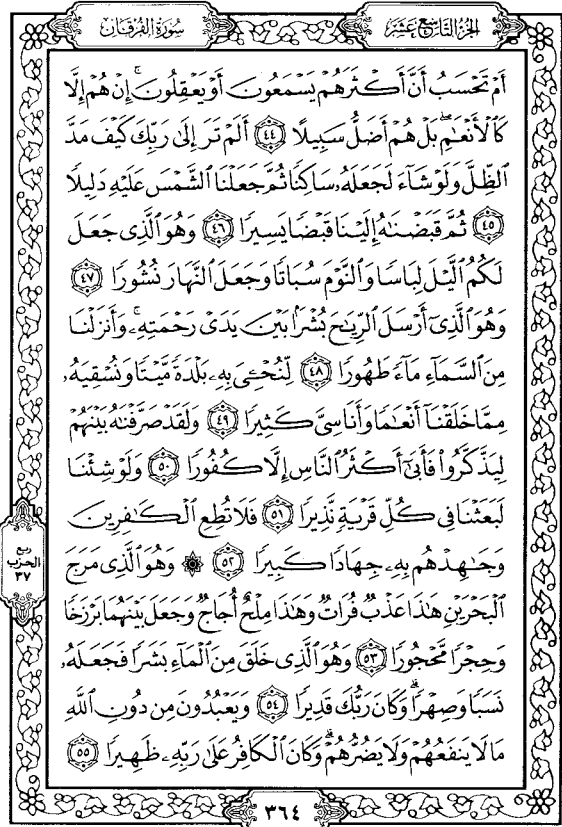 سُورَةُ الفُرْقَان
الجُزْءُ التَّاسِعَ عَشَرَ
أَمْ تَحْسَبُ أَنَّ أَكْثَرَهُمْ يَسْمَعُونَ أَوْ يَعْقِلُونَ ۚ إِنْ هُمْ إِلَّا
كَٱلْأَنْعَٰمِ ۖ بَلْ هُمْ أَضَلُّ سَبِيلًا ٤٤ أَلَمْ تَرَ إِلَىٰ رَبِّكَ كَيْفَ مَدَّ
ٱلظِّلَّ وَلَوْ شَآءَ لَجَعَلَهُۥ سَاكِنًا ثُمَّ جَعَلْنَا ٱلشَّمْسَ عَلَيْهِ دَلِيلًا
٤٥ ثُمَّ قَبَضْنَٰهُ إِلَيْنَا قَبْضًا يَسِيرًا ٤٦ وَهُوَ ٱلَّذِى جَعَلَ
لَكُمُ ٱلَّيْلَ لِبَاسًا وَٱلنَّوْمَ سُبَاتًا وَجَعَلَ ٱلنَّهَارَ نُشُورًا ٤٧
وَهُوَ ٱلَّذِىٓ أَرْسَلَ ٱلرِّيَٰحَ بُشْرًۢا بَيْنَ يَدَىْ رَحْمَتِهِۦ ۚ وَأَنزَلْنَا
مِنَ ٱلسَّمَآءِ مَآءً طَهُورًا ٤٨ لِّنُحْـِۧىَ بِهِۦ بَلْدَةً مَّيْتًا وَنُسْقِيَهُۥ
مِمَّا خَلَقْنَآ أَنْعَٰمًا وَأَنَاسِىَّ كَثِيرًا ٤٩ وَلَقَدْ صَرَّفْنَٰهُ بَيْنَهُمْ
لِيَذَّكَّرُوا۟ فَأَبَىٰٓ أَكْثَرُ ٱلنَّاسِ إِلَّا كُفُورًا ٥٠ وَلَوْ شِئْنَا
لَبَعَثْنَا فِى كُلِّ قَرْيَةٍ نَّذِيرًا ٥١ فَلَا تُطِعِ ٱلْكَٰفِرِينَ
وَجَٰهِدْهُم بِهِۦ جِهَادًا كَبِيرًا ٥٢ ۞ وَهُوَ ٱلَّذِى مَرَجَ
ٱلْبَحْرَيْنِ هَٰذَا عَذْبٌ فُرَاتٌ وَهَٰذَا مِلْحٌ أُجَاجٌ وَجَعَلَ بَيْنَهُمَا بَرْزَخًا
وَحِجْرًا مَّحْجُورًا ٥٣ وَهُوَ ٱلَّذِى خَلَقَ مِنَ ٱلْمَآءِ بَشَرًا فَجَعَلَهُۥ
نَسَبًا وَصِهْرًا ۗ وَكَانَ رَبُّكَ قَدِيرًا ٥٤ وَيَعْبُدُونَ مِن دُونِ ٱللَّهِ
مَا لَا يَنفَعُهُمْ وَلَا يَضُرُّهُمْ ۗ وَكَانَ ٱلْكَافِرُ عَلَىٰ رَبِّهِۦ ظَهِيرًا ٥٥
ربع
الحزب
٣٧
٣٦٤